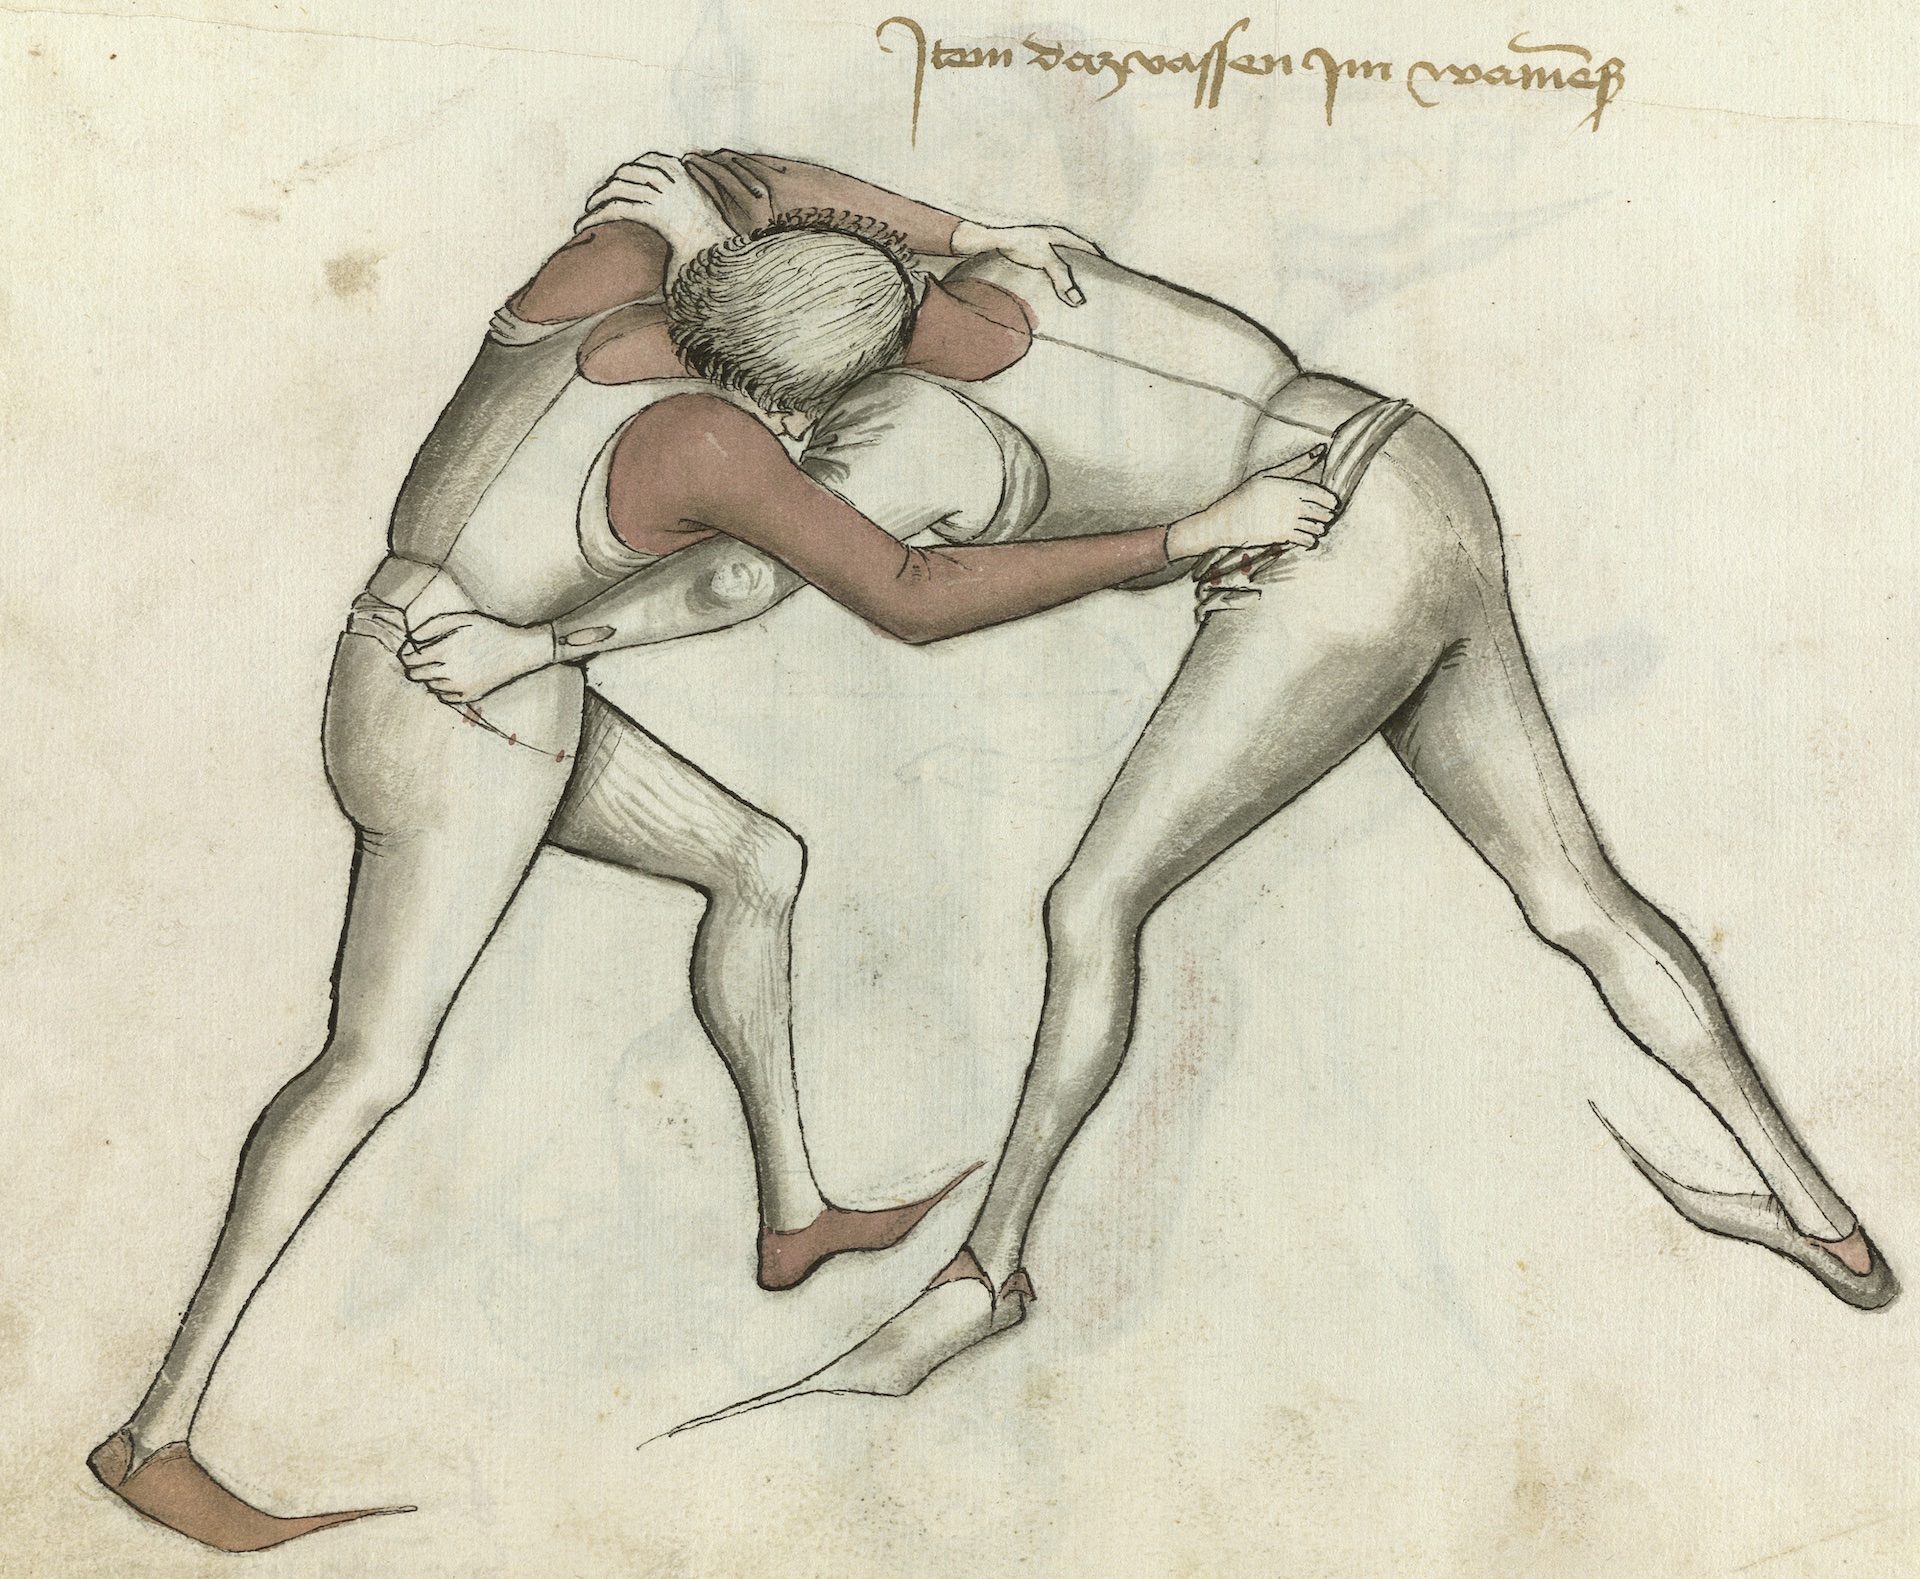 Item daz vassen Im wamēß